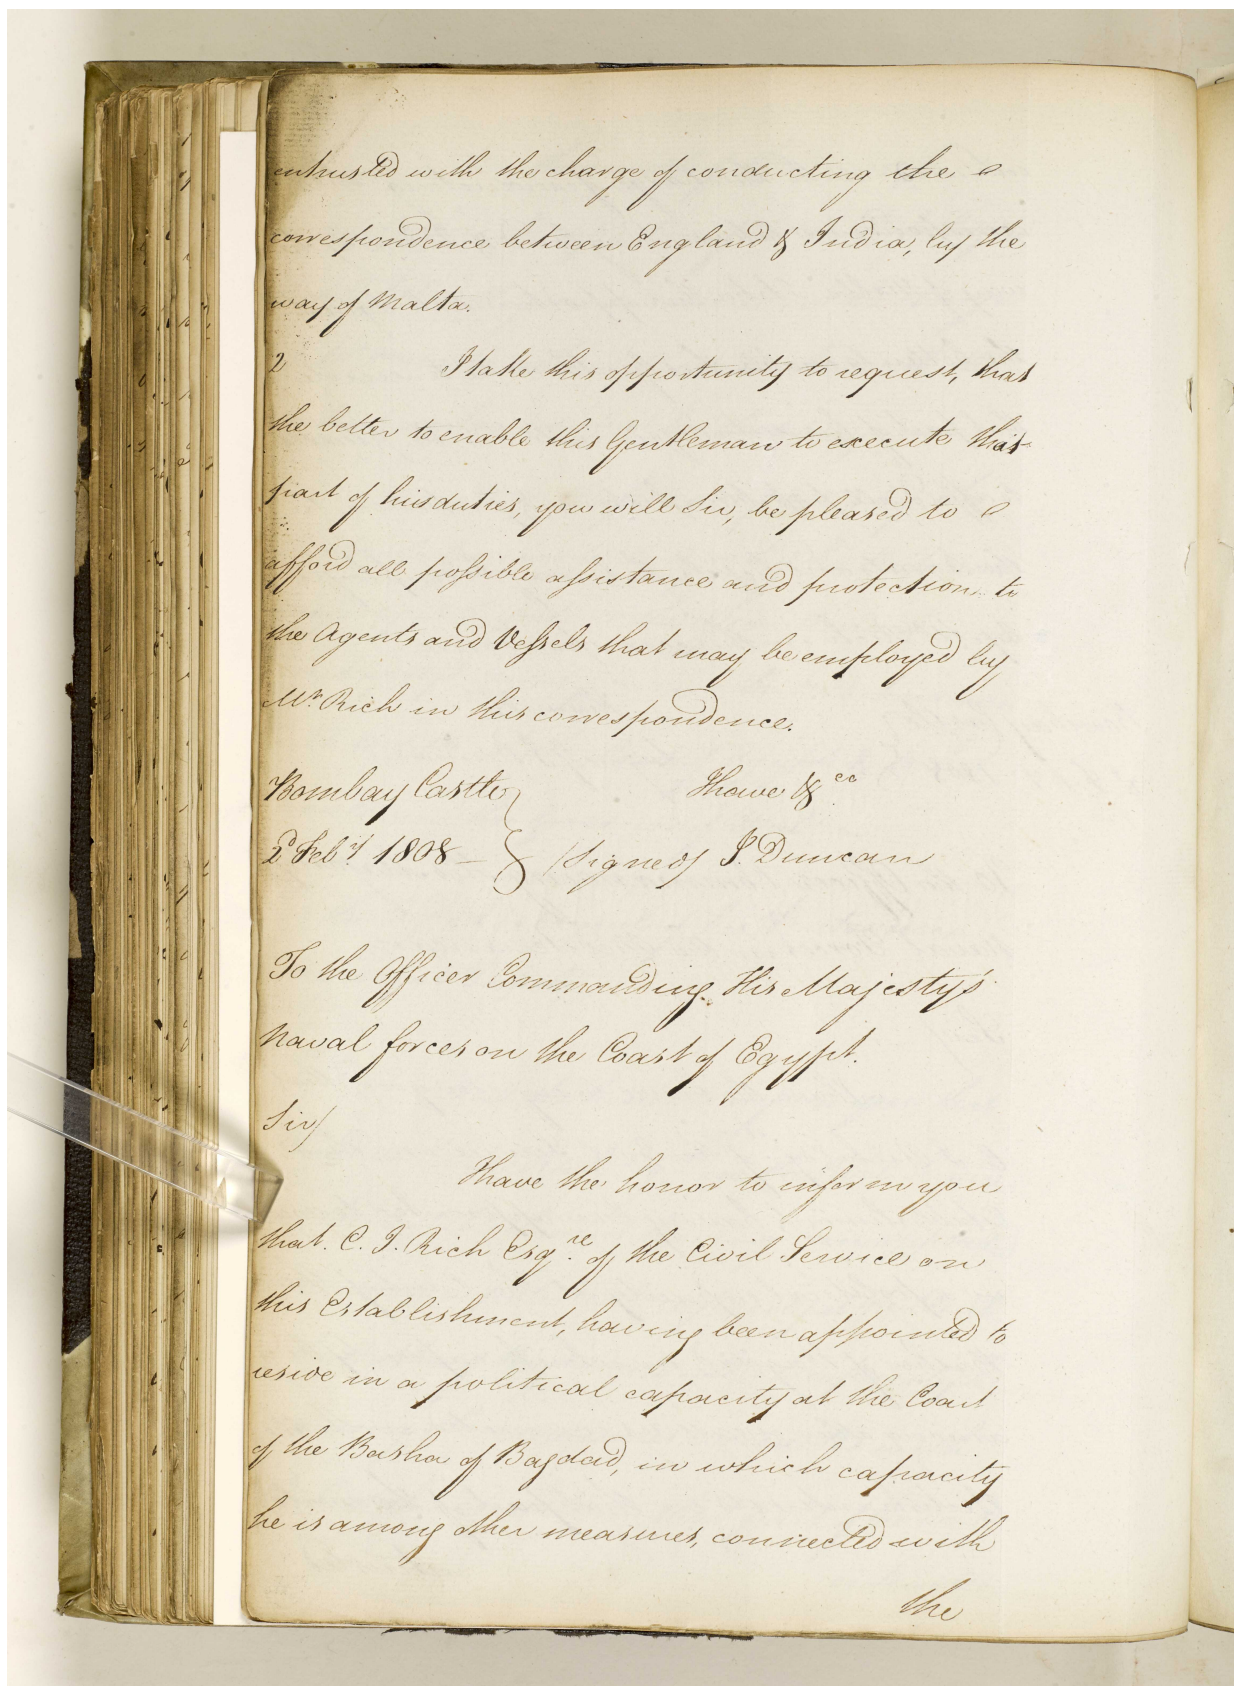 entrusted with the charge of conducting the
correspondence between England & India, by the
way of Malta.
2 I take this opportunity to request, that
the better to enable this Gentleman to execute that
part of his duties, you will Sir, be pleased to
afford all possible assistance and protection to
the Agents and Vessels that may be employed by
Mr. Rich in this correspondence.
Bombay Castle } I have &ca.
2d Feby 1808 — } /Signed/ J. Duncan
To the Officer Commanding His Majesty's
Naval forces on the Coast of Egypt.
Sir/
I have the honor to inform you
that C. J. Rich Esqre. of the Civil Service on
this Establishment, having been appointed to
reside in a political capacity at the Court
of the Basha of Bagdad, in which capacity
he is among other measures, connected with
the